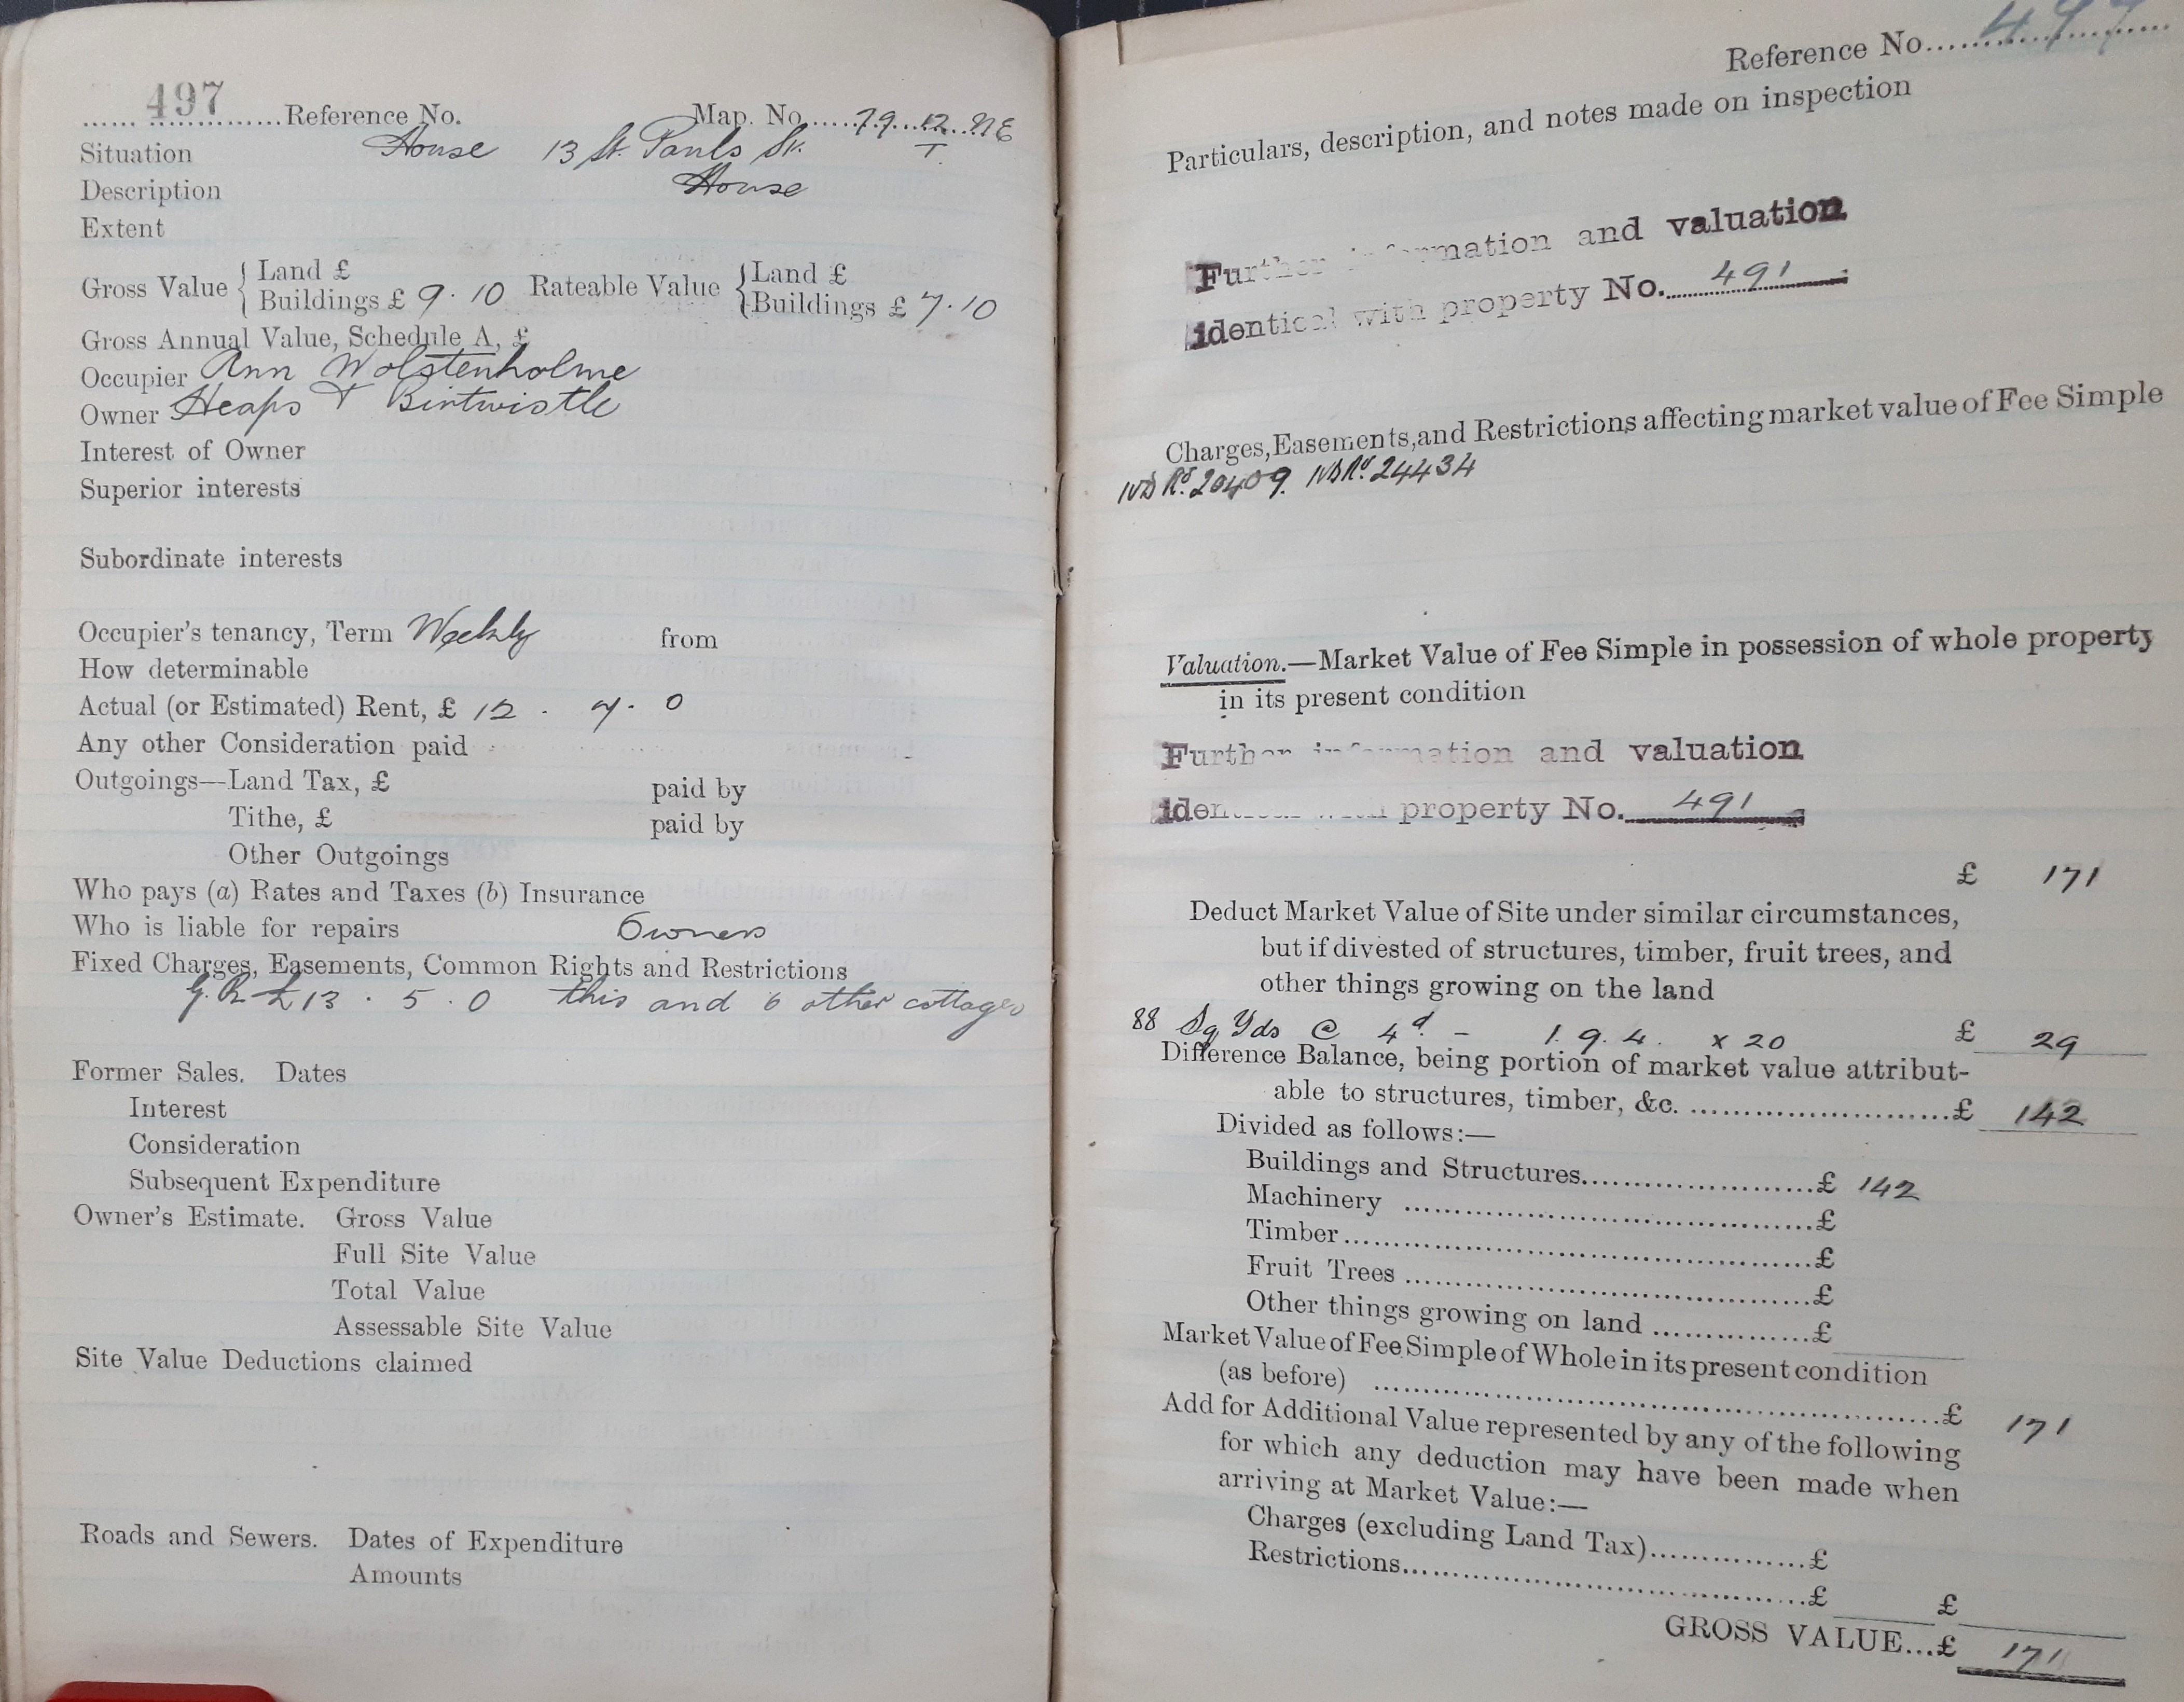 497 Reference No. Map. No. 79. 12. NE
Situation House 13 St. Pauls St. T.
Description House
Extent
Gross Value { Land £ Rateable Value { Land £
Buildings £ 9. 10 Buildings £ 7. 10
Gross Annual Value, Schedule A, £
Occupier Ann Wolstenholme
Owner Heaps & Birtwistle
Interest of Owner
Superior interests
Subordinate interests
Occupier's tenancy, Term Weekly from
How determinable
Actual (or Estimated) Rent, £ 12 . 7 . 0
Any other Consideration paid
Outgoings—Land Tax, £ paid by
Tithe, £ paid by
Other Outgoings
Who pays (a) Rates and Taxes (b) Insurance
Who is liable for repairs Owners
Fixed Charges, Easements, Common Rights and Restrictions
G.R. £13 . 5 . 0 this and 6 other cottages
Former Sales. Dates
Interest
Consideration
Subsequent Expenditure
Owner's Estimate. Gross Value
Full Site Value
Total Value
Assessable Site Value
Site Value Deductions claimed
Roads and Sewers. Dates of Expenditure
Amounts
Reference No. 497
Particulars, description, and notes made on inspection
Further information and valuation
identical with property No. 491
Charges, Easements, and Restrictions affecting market value of Fee Simple
IVD Rd. 20409. IVD Rd. 24434
Valuation.—Market Value of Fee Simple in possession of whole property
in its present condition
Further information and valuation
identical with property No. 491
£ 171
Deduct Market Value of Site under similar circumstances,
but if divested of structures, timber, fruit trees, and
other things growing on the land
88 Sq Yds @ 4d - 1. 9. 4. x 20 £ 29
Difference Balance, being portion of market value attribut-
able to structures, timber, &c. £ 142
Divided as follows:—
Buildings and Structures £ 142
Machinery £
Timber £
Fruit Trees £
Other things growing on land £
Market Value of Fee Simple of Whole in its present condition
(as before) £ 171
Add for Additional Value represented by any of the following
for which any deduction may have been made when
arriving at Market Value:—
Charges (excluding Land Tax) £
Restrictions £ £
GROSS VALUE...£ 171